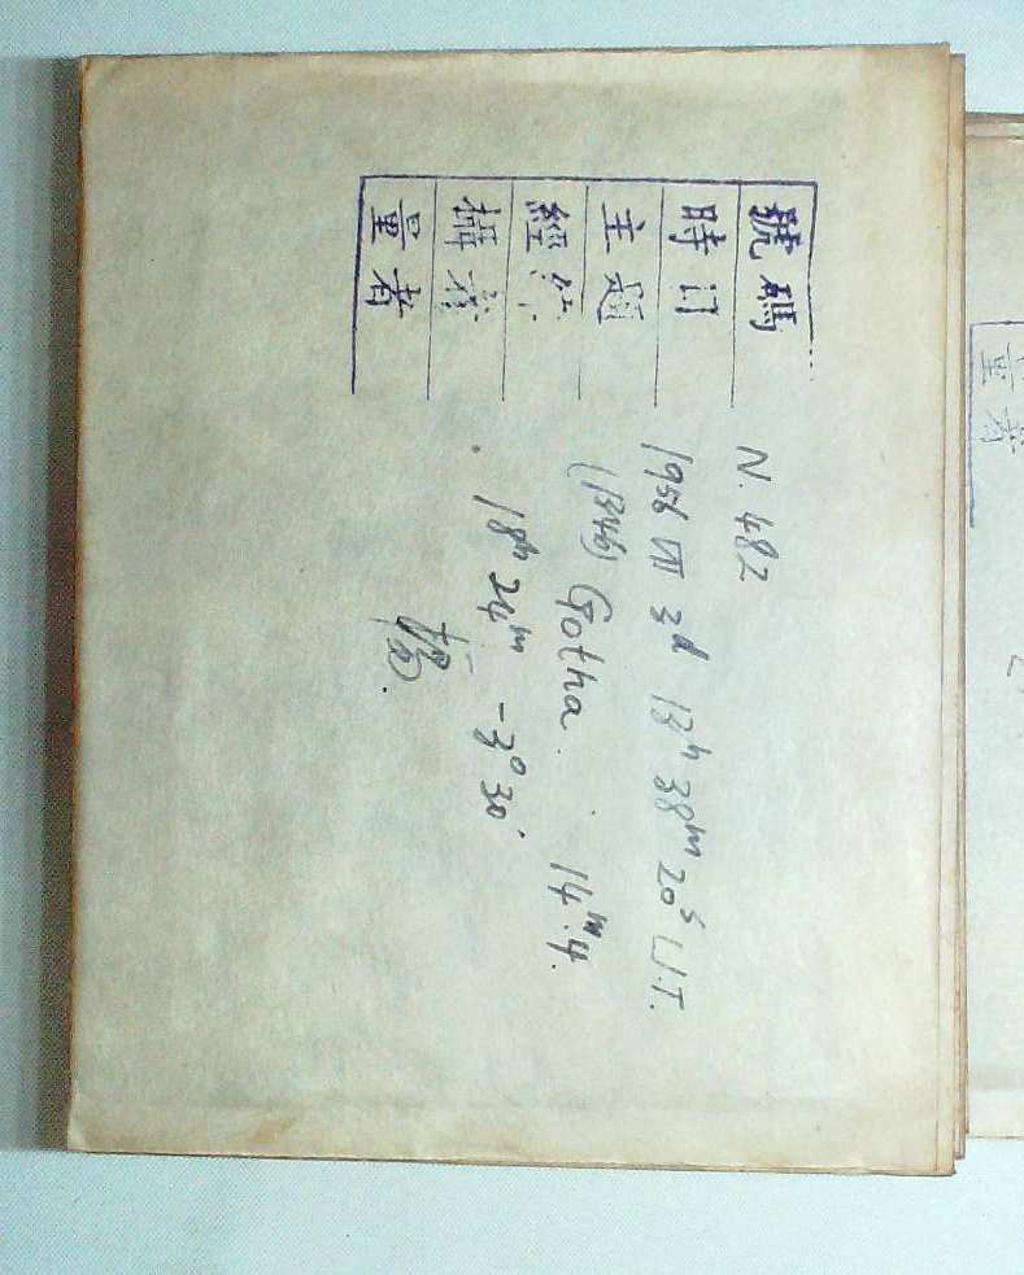 號碼 N. 482
時 1956 VII 3ᵈ 13ʰ 38ᵐ 20ˢ U.T.
主 (1346) Gotha. 14ᵐ.4.
經 18ʰ 24ᵐ -3° 30'
攝
量者
量者